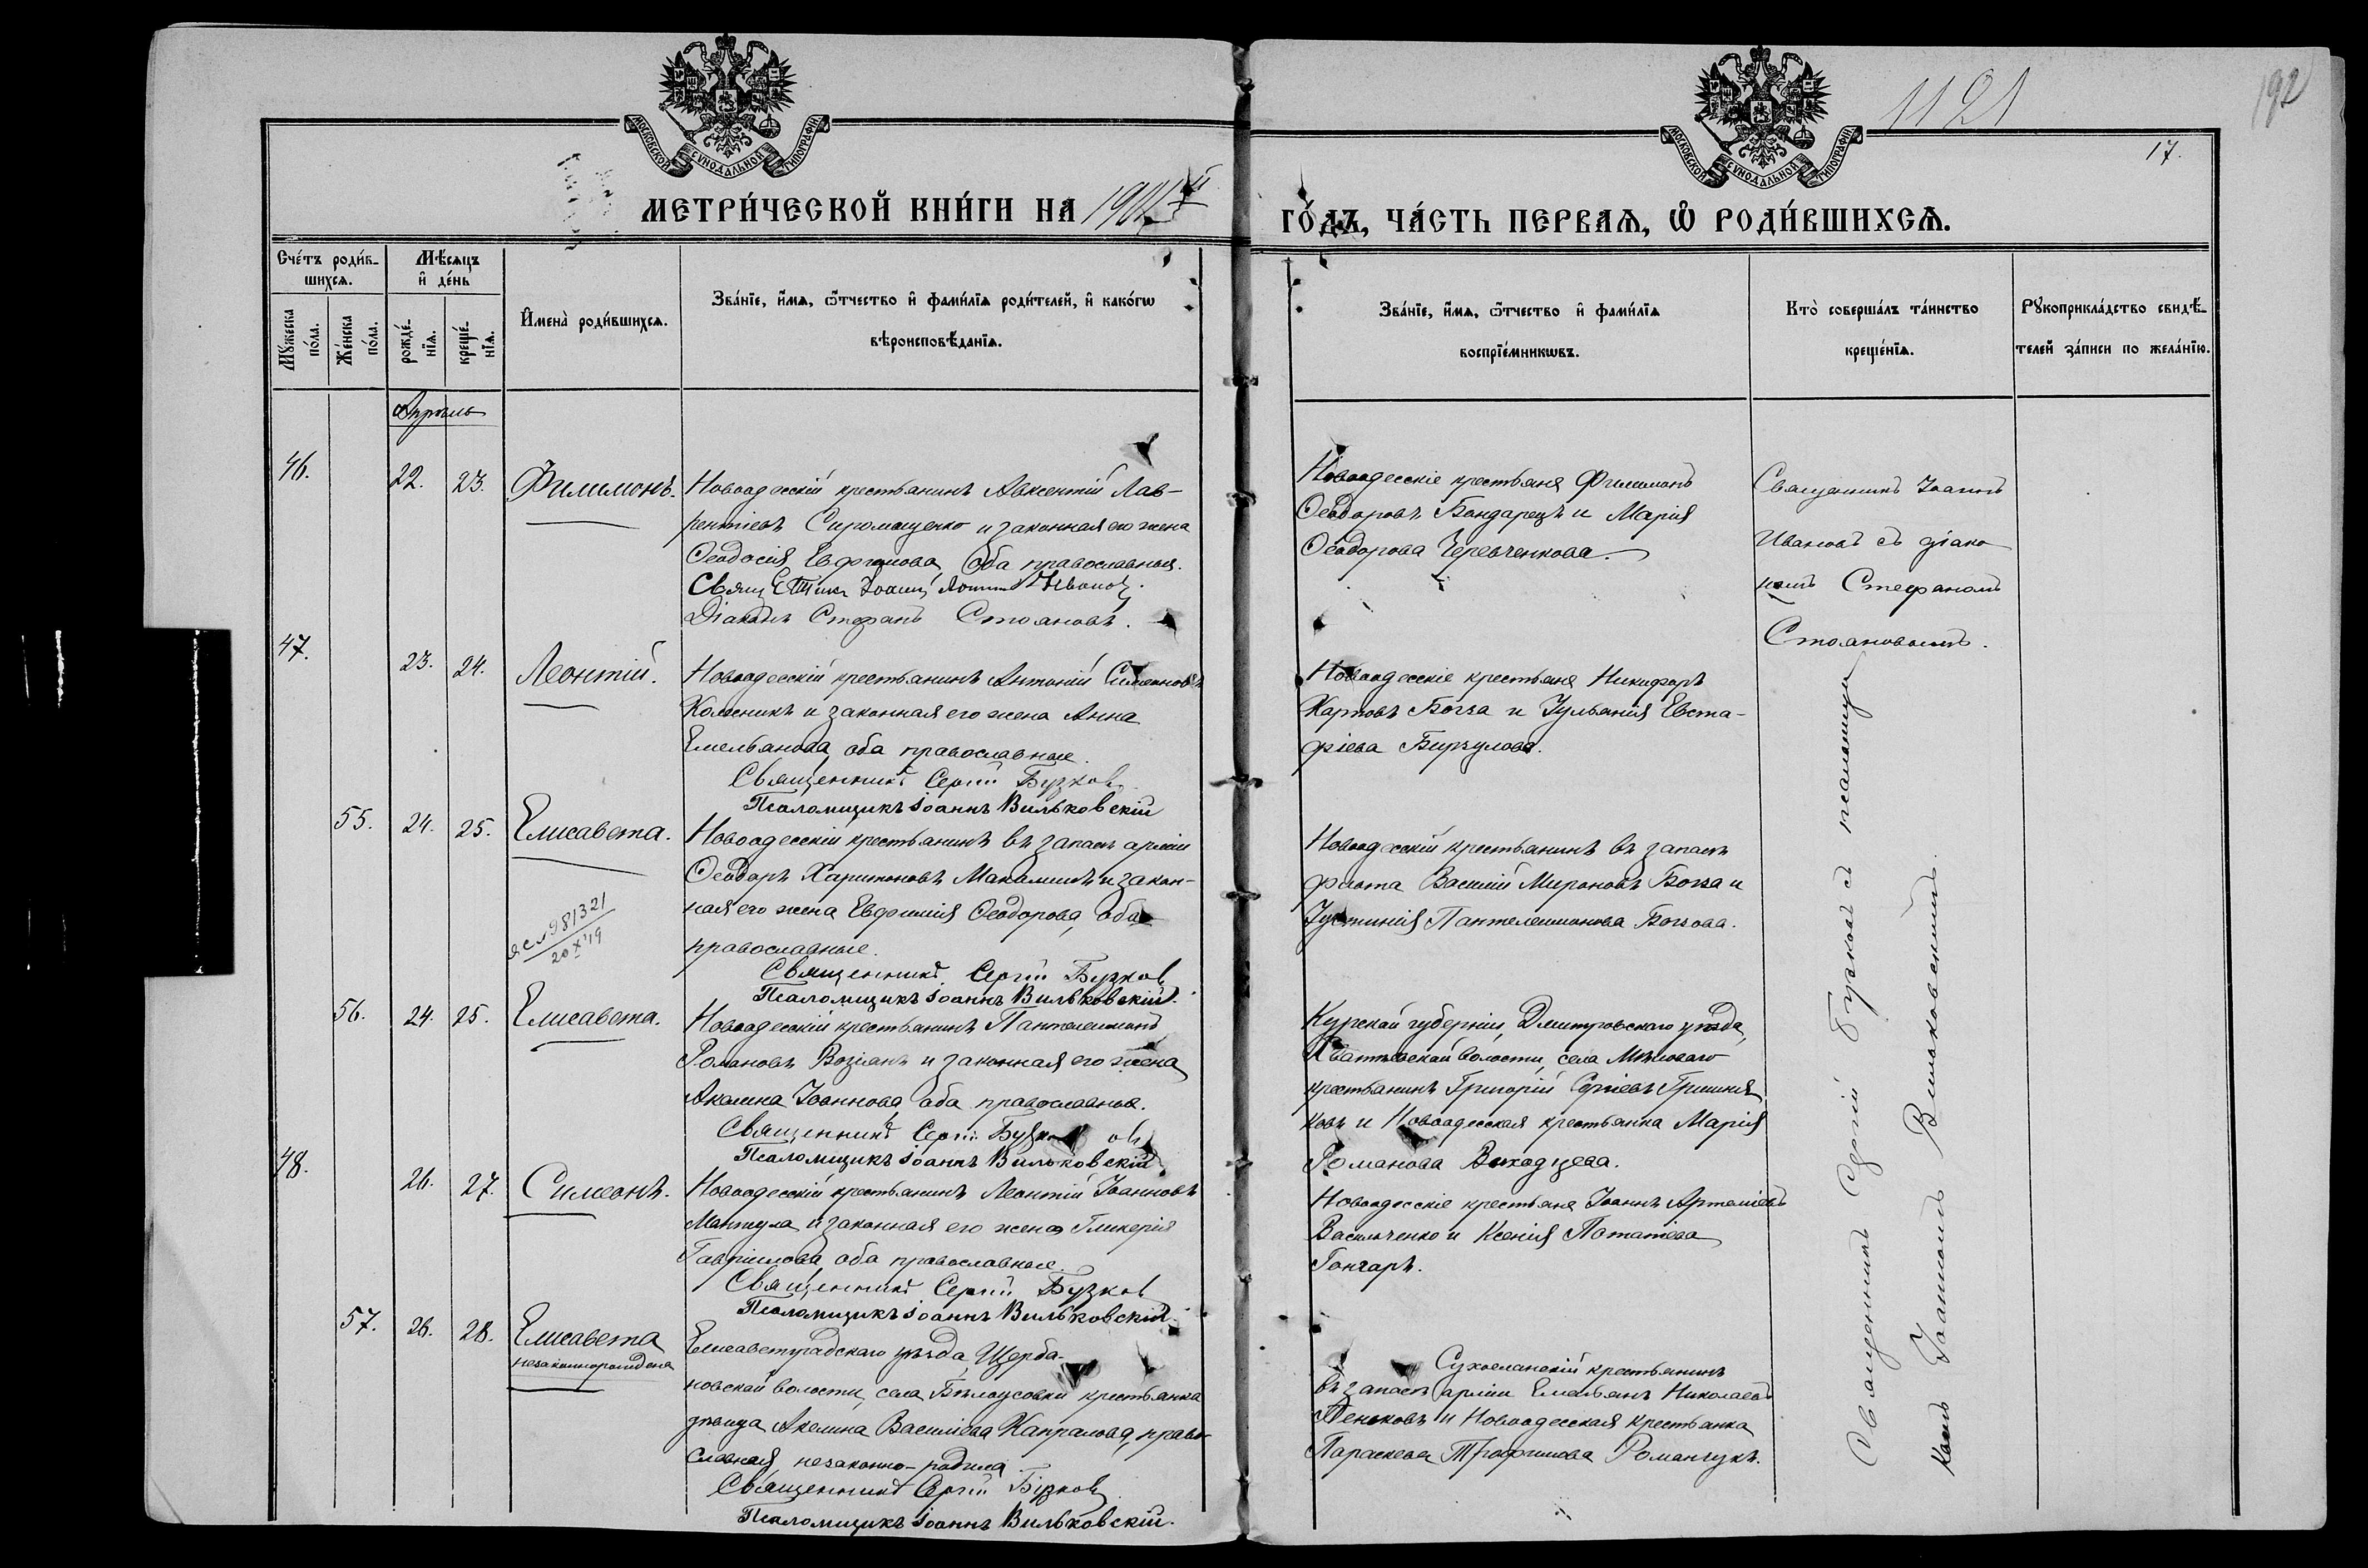 1121
192
17.
МОСКОВСКОЙ СѴНОДАЛЬНОЙ ТИПОГРАФІИ
МОСКОВСКОЙ СѴНОДАЛЬНОЙ ТИПОГРАФІИ
МЕТРИ́ЧЕСКОЙ КНИ́ГИ НА
ГО́ДЪ, ЧА́СТЬ ПЕРВАѦ, Ѡ҆ РОДИ́ВШИХСѦ.
Сче́тъ роди́в-
шихсѧ.
Мѣ́сѧцъ
и҆ де́нь
Мꙋ́жеска по́ла.
Же́нска по́ла.
рожде́-нїѧ.
креще́-нїѧ.
И҆мена̀ роди́вшихсѧ.
Зва́нїе, и҆́мѧ, ѻ҆́тчество и҆ фами́лїѧ роди́телей, и҆ како́гѡ
вѣроисповѣ́данїѧ.
Зва́нїе, и҆́мѧ, ѻ҆́тчество и҆ фами́лїѧ
воспрїе́мникѡвъ.
Кто̀ соверша́лъ та́инство
креще́нїѧ.
Рꙋкоприкла́дство свидѣ́-
телей за́писи по жела́нїю.
Апрѣль
46. 22. 23. Филимонъ.
Новоодесскій крестьянинъ Авксентій Лав-
рентіевъ Сиромащенко и законная его жена
Ѳеодосія Евфимова, оба православные.
Діаконъ Стефанъ Стояновъ.
Новоодесскіе крестьяне Филимонъ
Ѳеодоровъ Бондарецъ и Марія
Ѳеодорова Черевченкова.
Священникъ Іоаннъ
Ивановъ съ діако
номъ Стефаномъ
Стояновымъ.
47. 23. 24. Леонтій.
Новоодесскій крестьянинъ Антоній Симеоновъ
Колесникъ и законная его жена Анна
Емельянова, оба православные.
Священникъ Сергій Бузков
Псаломщикъ Іоаннъ Вильковскій
Новоодесскіе крестьяне Никифоръ
Карповъ Богза и Іульянія Евста-
фіева Бирзулова.
55. 24. 25. Елисавета.
Новоодесскій крестьянинъ въ запасѣ арміи
Ѳеодоръ Харитоновъ Макамыкъ и закон-
ная его жена Евфимія Ѳеодорова, оба
православные.
Священникъ Сергій Бузков
Псаломщикъ Іоаннъ Вильковскій.
981321
20 X 19
Новоодесскій крестьянинъ въ запасѣ
флота Василій Мироновъ Богза и
Іустинія Пантелеимонова Богзова.
56. 24. 25. Елисавета.
Новоодесскій крестьянинъ Пантелеимонъ
Романовъ Возіянъ и законная его жена
Акилина Іоаннова, оба православные.
Священникъ Сергій
Псаломщикъ Іоаннъ Вильковскій
Курской губерніи, Дмитровскаго уѣзда,
волости, села
крестьянинъ Григорій Сергіевъ Гришня
ковъ и Новоодесская крестьянка Марія
Романова Выходцева.
48. 26. 27. Симеонъ.
Новоодесскій крестьянинъ Леонтій Іоанновъ
Мантула и законная его жена Гликерія
Гавріилова, оба православные.
Священникъ Сергій Бузков
Псаломщикъ Іоаннъ Вильковскій.
Новоодесскіе крестьяне Іоаннъ Артеміевъ
Васильченко и Ксенія Потапіева
Гончаръ.
57. 26. 28. Елисавета
незаконнорожденная
Елисаветградскаго уѣзда, Щерба-
новской волости, села Бѣлоусовки крестьянка
дѣвица Акилина Василіева Капралова, право-
славная, незаконно-родила.
Священникъ Сергій Бузков
Псаломщикъ Іоаннъ Вильковскій.
Сухоеланскій крестьянинъ
въ запасѣ арміи Емельянъ Николаевъ
Пеньковъ и Новоодесская крестьянка
Параскева Трофимова Романчукъ.
Священникъ Сергій Бузковъ съ псаломщи
комъ Іоанномъ Вильковскимъ.